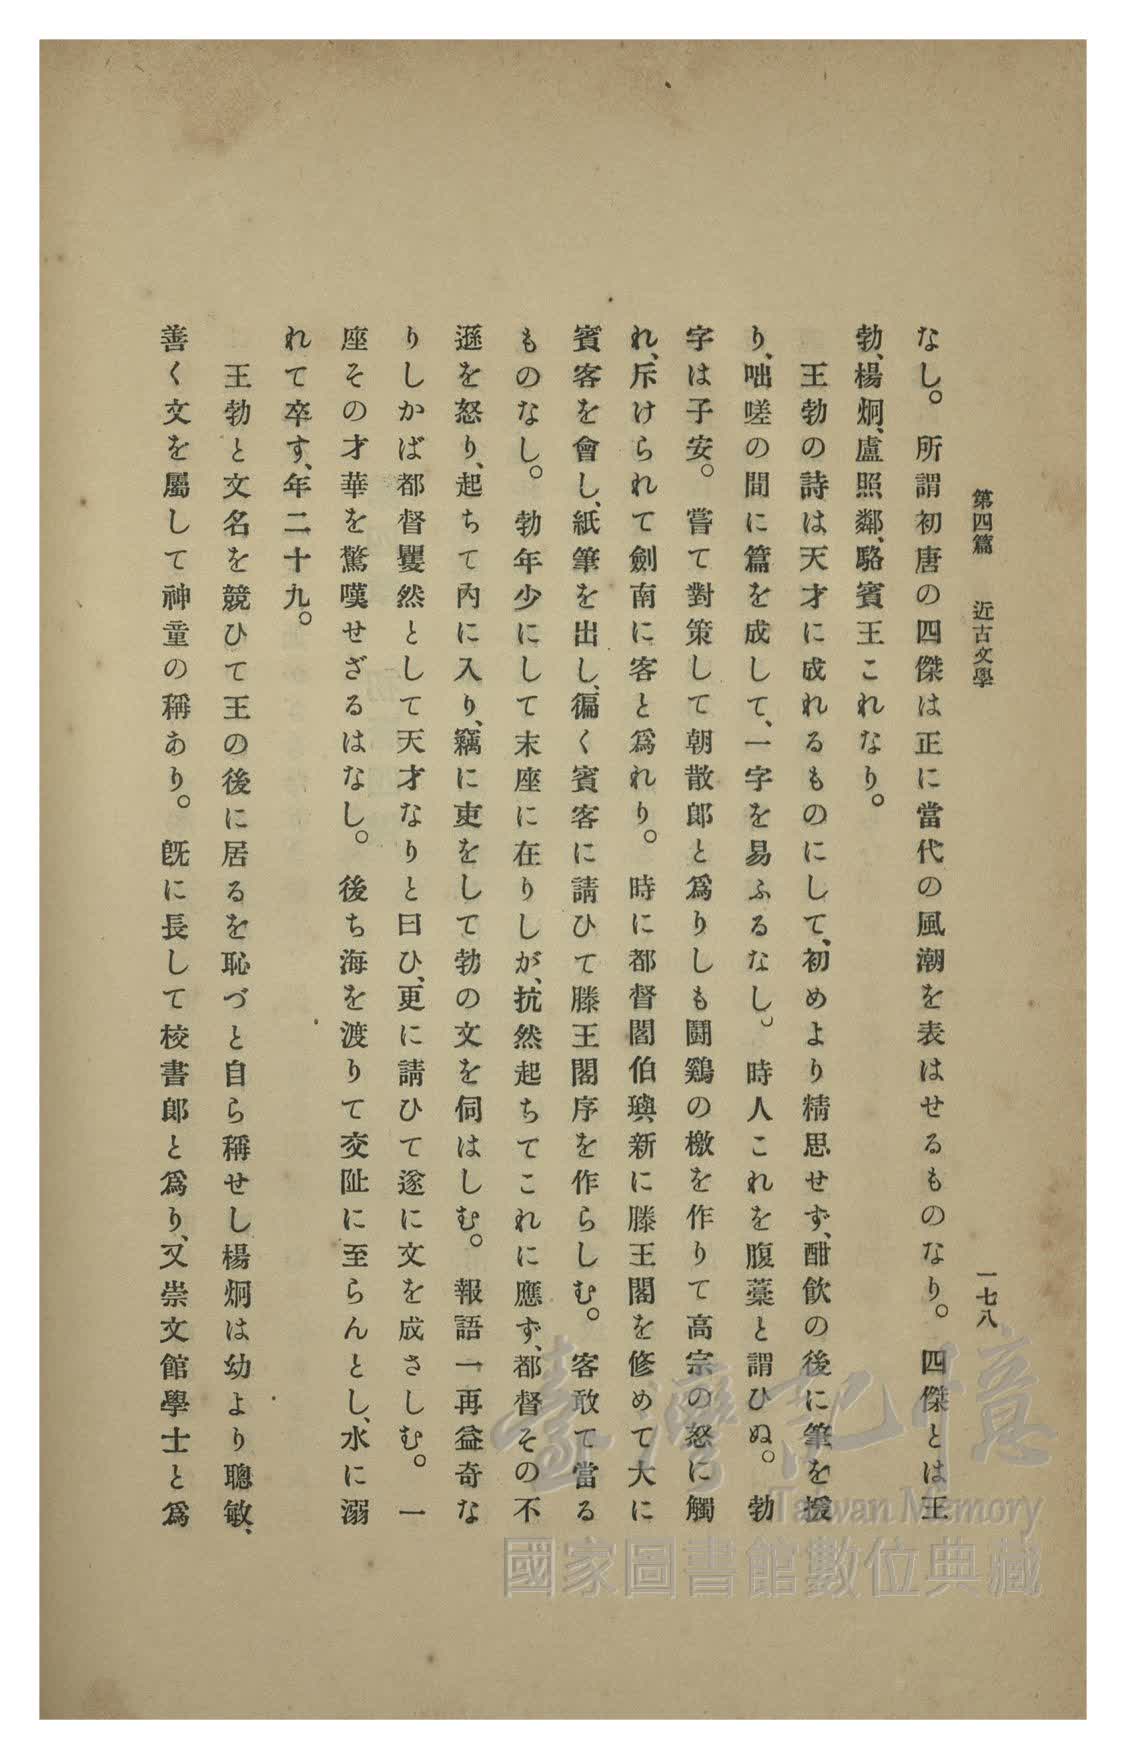 第四篇 近古文學 一七八
なし。所謂初唐の四傑は正に當代の風潮を表はせるものなり。四傑とは王
勃、楊炯、盧照鄰、駱賓王これなり。
王勃の詩は天才に成れるものにして、初めより精思せず、酣飮の後に筆を援
り、咄嗟の間に篇を成して、一字を易ふるなし。時人これを腹藁と謂ひぬ。勃
字は子安。嘗て對策して朝散郎と爲りしも鬪鷄の檄を作りて高宗の怒に觸
れ、斥けられて劍南に客と爲れり。時に都督閻伯璵新に滕王閣を修めて大に
賓客を會し、紙筆を出し、徧く賓客に請ひて滕王閣序を作らしむ。客敢て當る
ものなし。勃年少にして末座に在りしが、抗然起ちてこれに應ず、都督その不
遜を怒り、起ちて內に入り、竊に吏をして勃の文を伺はしむ。報語一再益奇な
りしかば都督矍然として天才なりと曰ひ、更に請ひて遂に文を成さしむ。一
座その才華を驚嘆せざるはなし。後ち海を渡りて交阯に至らんとし、水に溺
れて卒す、年二十九。
王勃と文名を競ひて王の後に居るを恥づと自ら稱せし楊炯は幼より聰敏、
善く文を屬して神童の稱あり。旣に長して校書郎と爲り、又崇文館學士と爲
臺灣記憶
Taiwan Memory
國家圖書館數位典藏